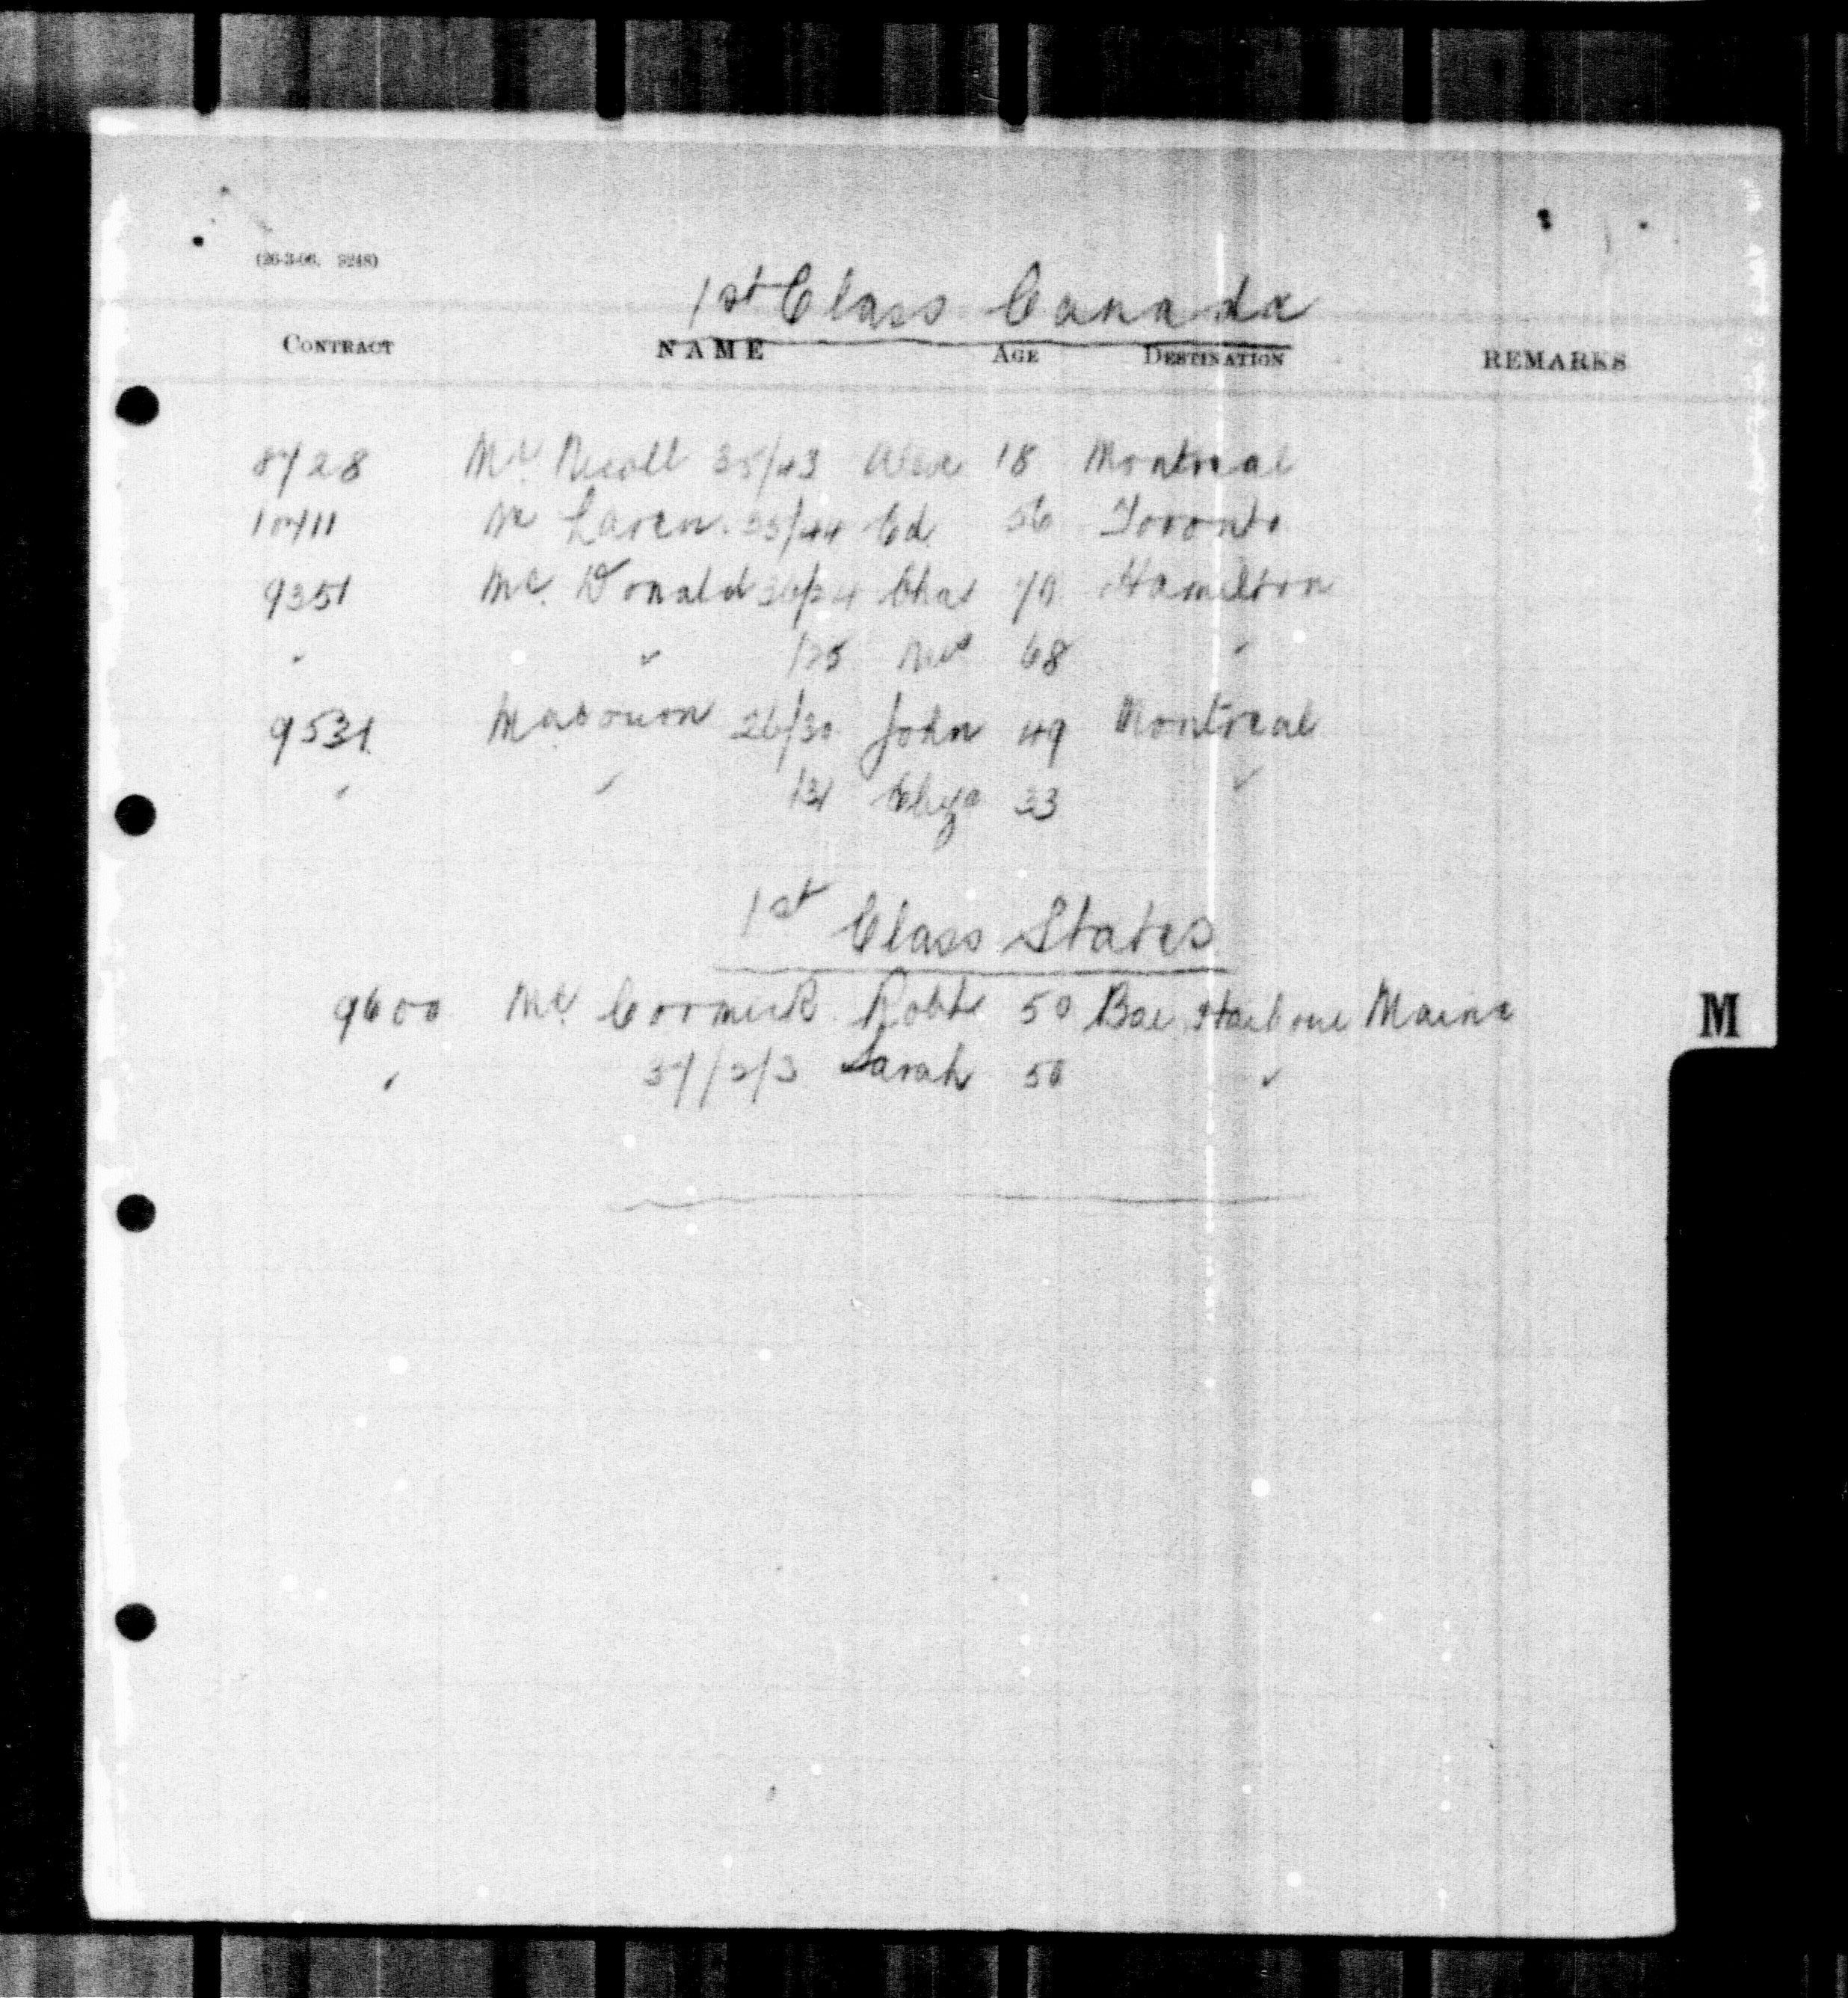 (26-3-06. 9248)
1st Class Canada
CONTRACT NAME AGE DESTINATION REMARKS
8728 Mc Nicoll 35/43 Alex 18 Montreal
10411 Mc Laren 35/44 Ed 56 Toronto
9351 Mc Donald 36/24 Chas 70 Hamilton
" " /25 Mrs 68 "
9531 26/30 John 49 Montreal
" " /31 33 "
1st Class States
9600 Mc Cormick Robt 50 Bar Harbour Maine
" 37/2/3 Sarah 50 "
M